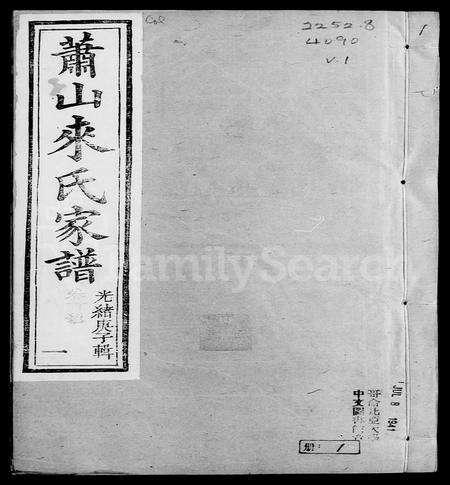 蕭山來氏家譜
光緒庚子輯
一
2252.8
4090
v.1
1
FamilySearch
JUL 8 1941
中文圖
册: 1